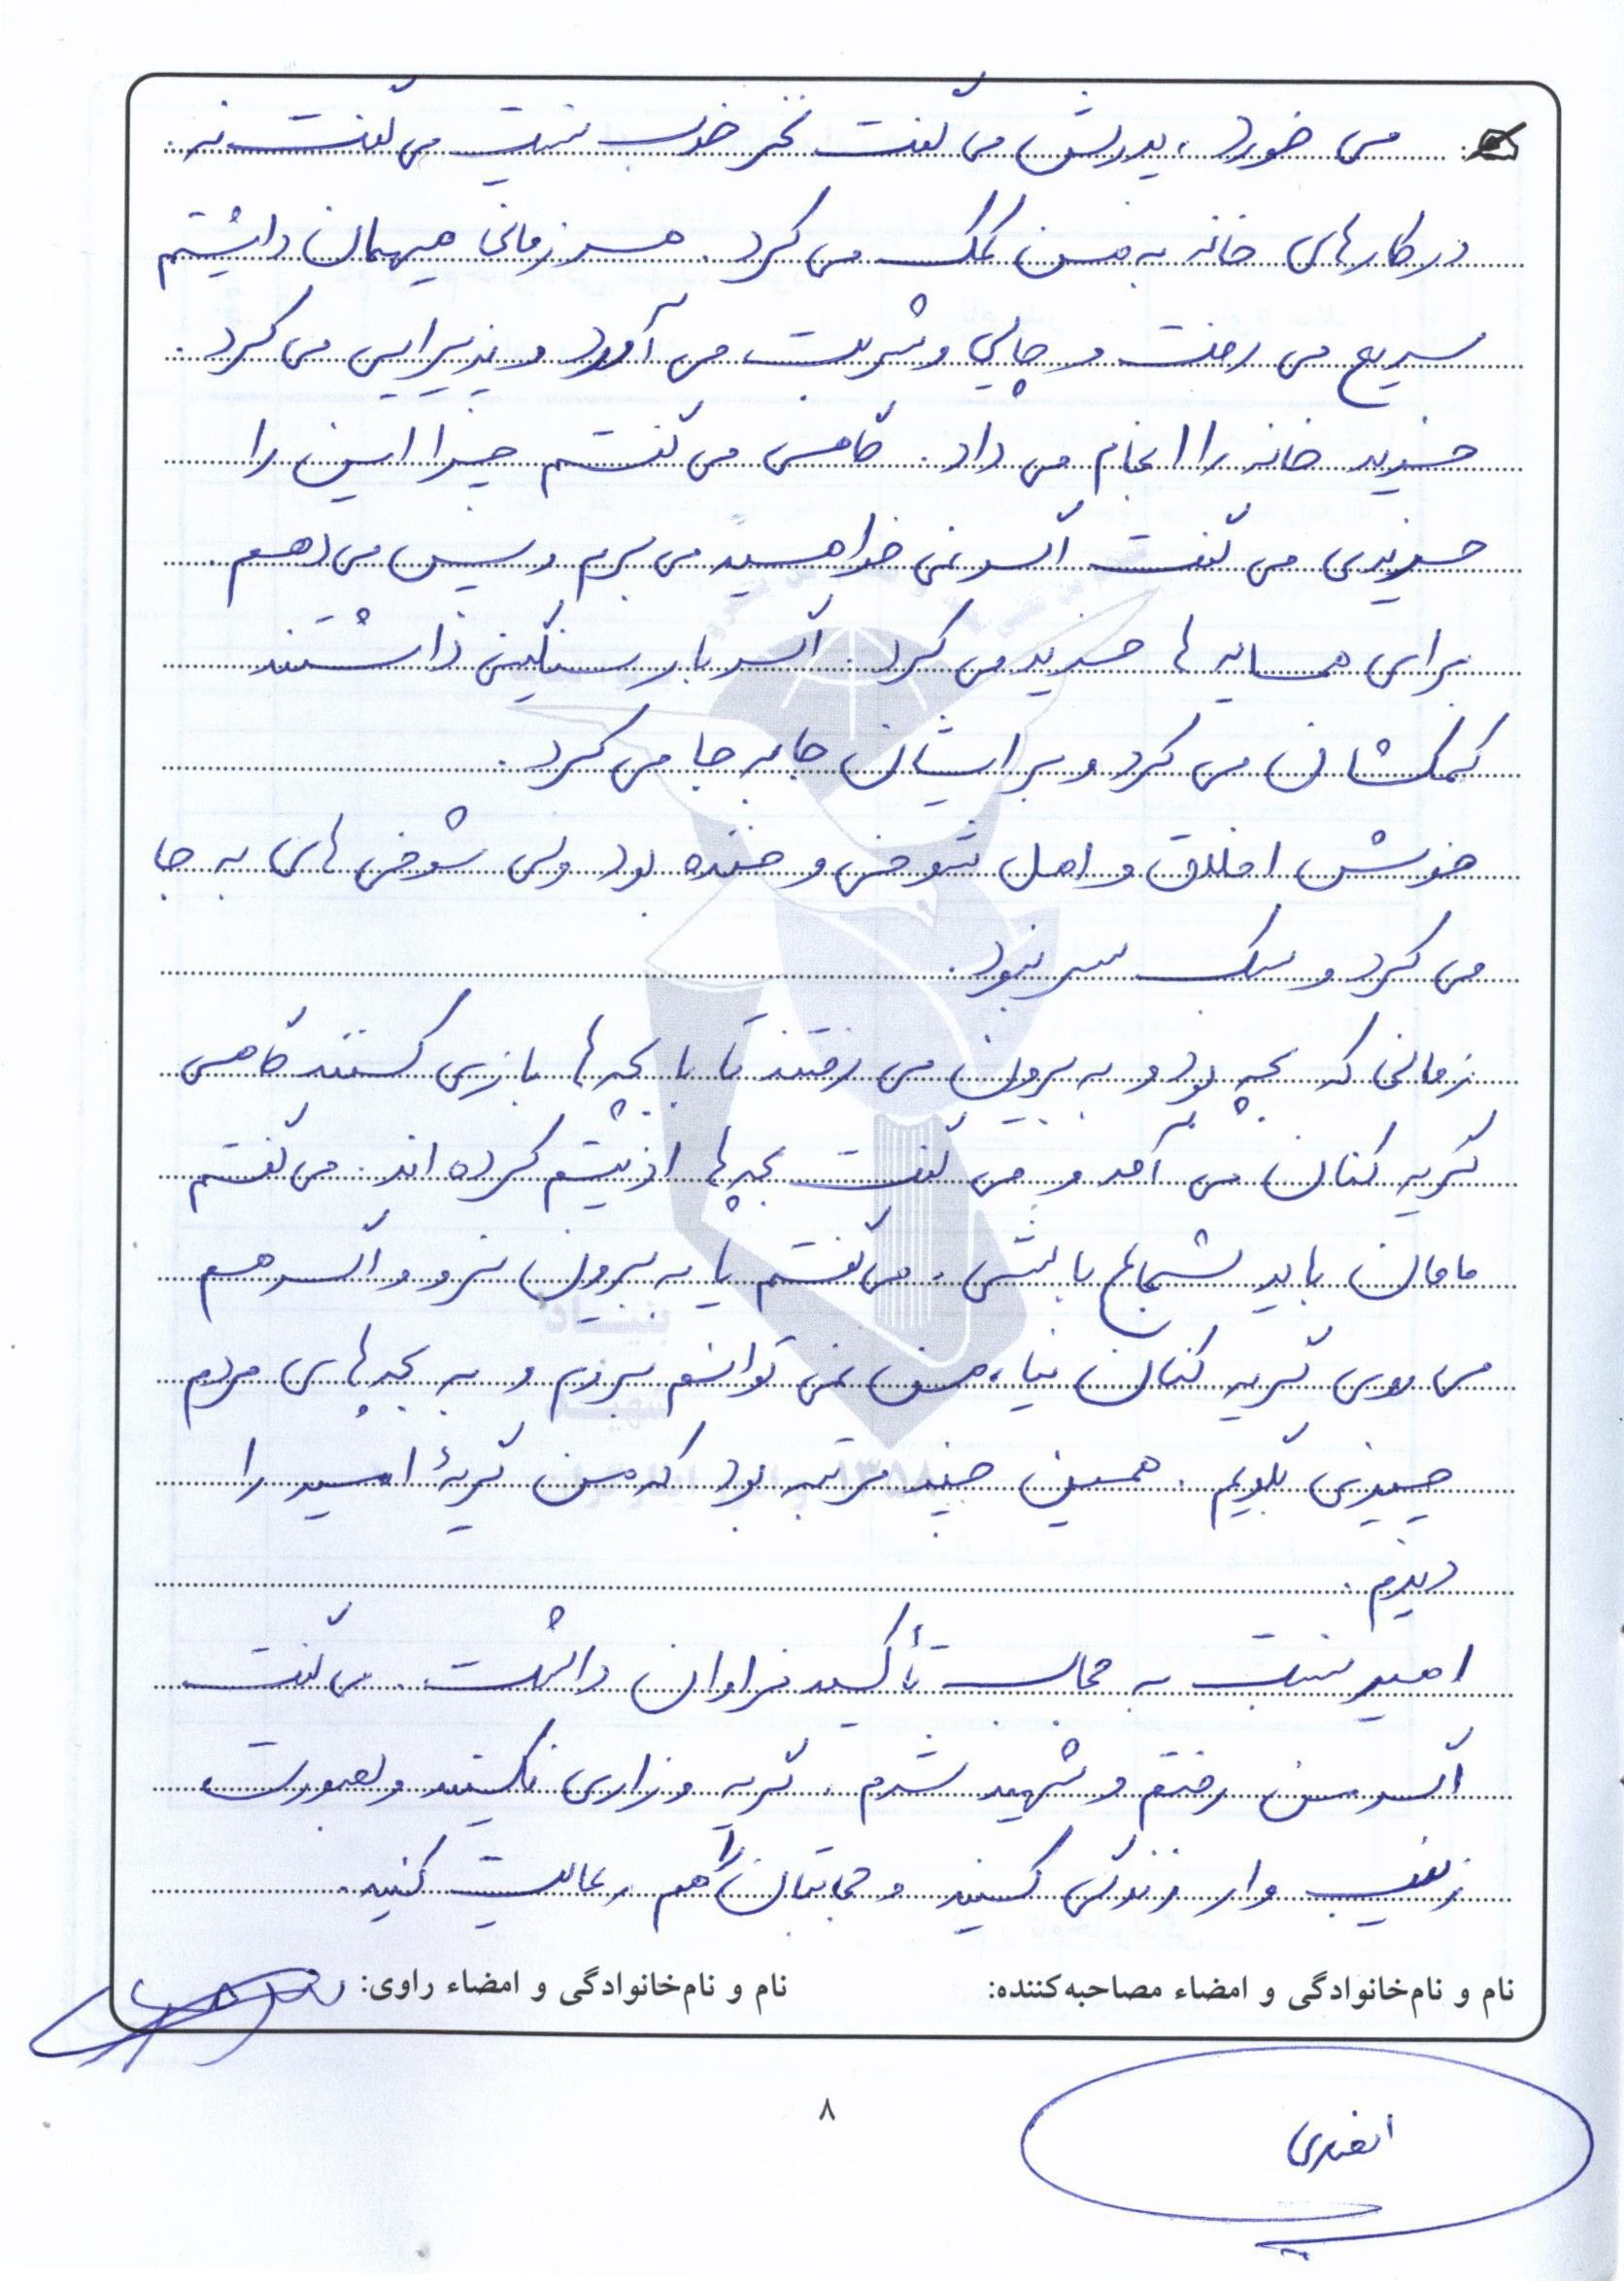 می خورد، پدرش می گفت نخر خوب نیست می گفت نه.
در کارهای خانه به من کمک می کرد. هر زمانی میهمان داشتیم
سریع می رفت و چایی و شربت می آورد و پذیرایی می کرد.
خرید خانه را انجام می داد. گاهی می گفتم چرا این را
خریدی می گفت اگر نمی خواهید می برم و پس می دهم.
برای همسایه ها خرید می کرد. اگر بار سنگینی داشتند
کمکشان می کرد و برایشان جا به جا می کرد.
خوش اخلاق و اهل شوخی و خنده بود ولی شوخی های به جا
می کرد و سبک سر نبود.
زمانی که بچه بود و به بیرون می رفتند تا با بچه ها بازی کنند گاهی
گریه کنان می آمد و می گفت بچه ها اذیتم کرده اند. می گفتم
مامان باید شجاع باشی. می گفتم یا به بیرون نرو و اگر هم
می روی گریه کنان نیا، من نمی توانم بروم و به بچه های مردم
چیزی بگویم. همین چند مرتبه بود که من گریهٔ امیر را
دیدم.
امیر نسبت به حجاب تأکید فراوان داشت. می گفت
اگر من رفتم و شهید شدم، گریه و زاری نکنید و بصورت
زینب وار زندگی کنید و حجابتان را هم رعایت کنید.
نام و نام‌خانوادگی و امضاء مصاحبه‌کننده: نام و نام‌خانوادگی و امضاء راوی:
۸